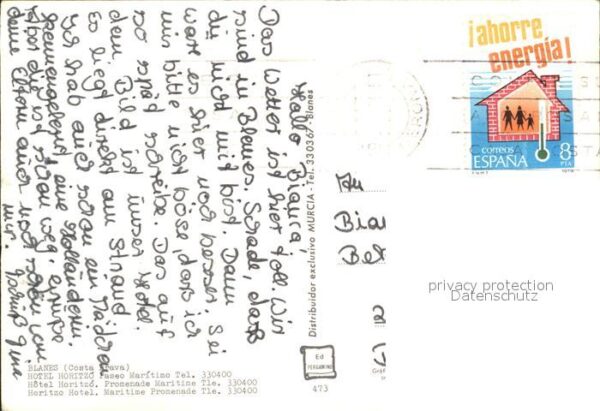 Hallo Bianca,
Das Wetter ist hier toll. Wir
sind in Blanes. Schade, daß
du nicht mit bist. Dann
wäre es hier noch besser. Sei
mir bitte nicht böse, daß ich
so schreibe. Das auf
dem Bild ist unser Hotel.
Es liegt direkt am Strand.
Ich hab auch schon ein Mädchen
kennengelernt, eine Holländerin.
Aber die ist schon weg.
deine Eltern auch noch schön von
mir.
¡ahorre
energía!
correos
ESPAÑA
8
PTA
An
Bia
Be
privacy protection
Datenschutz
Distribuidor exclusivo MURCIA - Tel. 330367 - Blanes
Ed
PERGAMINO
473
BLANES (Costa Brava)
HOTEL HORITZO Paseo Marítimo Tel. 330400
Hôtel Horitzó. Promenade Maritime Tle. 330400
Horitzo Hotel. Maritime Promenade Tle. 330400